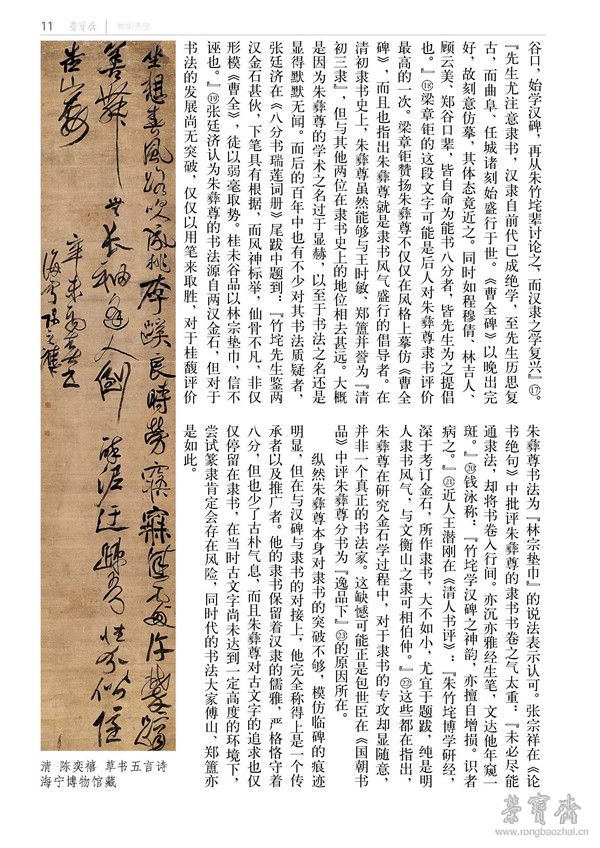 11
荣宝斋
谷口，始学汉碑，再从朱竹垞辈讨论之，而汉隶之学复兴』⑰。
『先生尤注意隶书，汉隶自前代已成绝学，至先生历思复
古，而曲阜、任城诸刻始盛行于世。《曹全碑》以晚出完
好，故刻意仿摹，其体态竟近之。同时如程穆倩、林吉人、
顾云美、郑谷口辈，皆自命为能书八分者，皆先生为之提倡
也。』⑱梁章钜的这段文字可能是后人对朱彝尊隶书评价
最高的一次。梁章钜赞扬朱彝尊不仅仅在风格上摹仿《曹全
碑》，而且也指出朱彝尊就是隶书风气盛行的倡导者。在
清初隶书史上，朱彝尊虽然能够与王时敏、郑簠并誉为『清
初三隶』，但与其他两位在隶书史上的地位相去甚远。大概
是因为朱彝尊的学术之名过于显赫，以至于书法之名还是
显得默默无闻。而后的百年中也有不少对其书法质疑者，
张廷济在《八分书瑞莲词册》尾跋中题到：『竹垞先生鉴两
汉金石甚伙，下笔具有根据，而风神标举，仙骨不凡，非仅
形模《曹全》，徒以弱毫取势。桂未谷品以林宗垫巾，信不
诬也。』⑲张廷济认为朱彝尊的书法源自两汉金石，但对于
书法的发展尚无突破，仅仅以用笔来取胜，对于桂馥评价
朱彝尊书法为『林宗垫巾』的说法表示认可。张宗祥在《论
书绝句》中批评朱彝尊的隶书书卷之气太重：『未必尽能
通隶法，却将书卷入行间。亦沉亦雅经生笔，文达他年窥一
斑。』⑳钱泳称：『竹垞学汉碑之神韵，亦擅自增损。识者
病之。』㉑近人王潜刚在《清人书评》：『朱竹垞博学研经，
深于考订金石，所作隶书，大不如小，尤宜于题跋，纯是明
人隶书风气，与文衡山之隶可相伯仲。』㉒这些都在指出，
朱彝尊在研究金石学过程中，对于隶书的专攻却显随意，
并非一个真正的书法家。这缺憾可能正是包世臣在《国朝书
品》中评朱彝尊分书为『逸品下』㉓的原因所在。
纵然朱彝尊本身对隶书的突破不够，模仿临碑的痕迹
明显，但在与汉碑与隶书的对接上，他完全称得上是一个传
承者以及推广者。他的隶书保留着汉隶的儒雅，严格恪守着
八分，但也少了古朴气息，而且朱彝尊对古文字的追求也仅
仅停留在隶书，在当时古文字尚未达到一定高度的环境下，
尝试篆隶肯定会存在风险，同时代的书法大家傅山、郑簠亦
是如此。
清 陈奕禧 草书五言诗
海宁博物馆藏
荣宝斋
www.rongbaozhai.cn